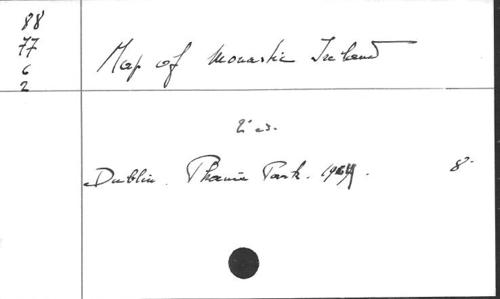 88
77
6
2
Map of Monastic Ireland
2ª ed.
Dublin. Phoenix Park.
8º